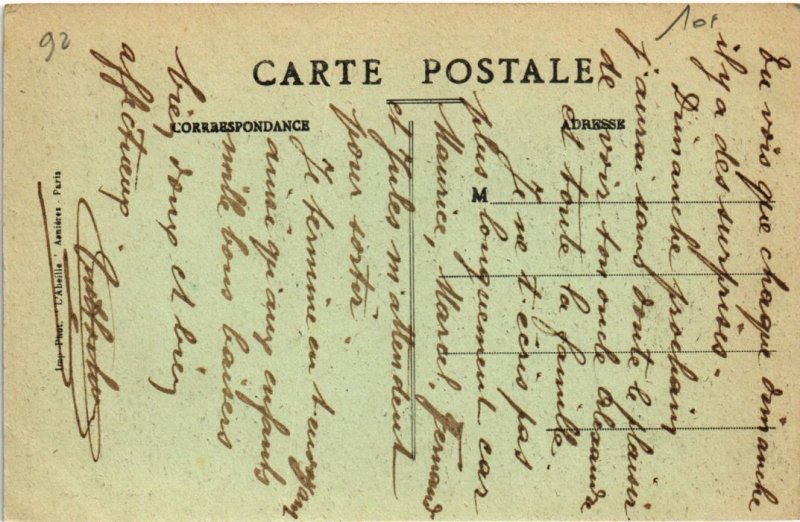 92
10f
CARTE POSTALE
CORRRESPONDANCE
ADRESSE
M
Imp Phot. "L'Abeille" Asnières - Paris
Tu vois que chaque dimanche
il y a des surprises.
Dimanche prochain
j'aurai sans doute le plaisir
de voir ton oncle
et toute la famille
Je ne t'écris pas
plus longuement car
Maurice, Marcel, Fernand
et Jules m'attendent
pour sortir.
Je termine en t'envoyant
ainsi qu'aux enfants
mille bons baisers
bien doux et bien
affectueux